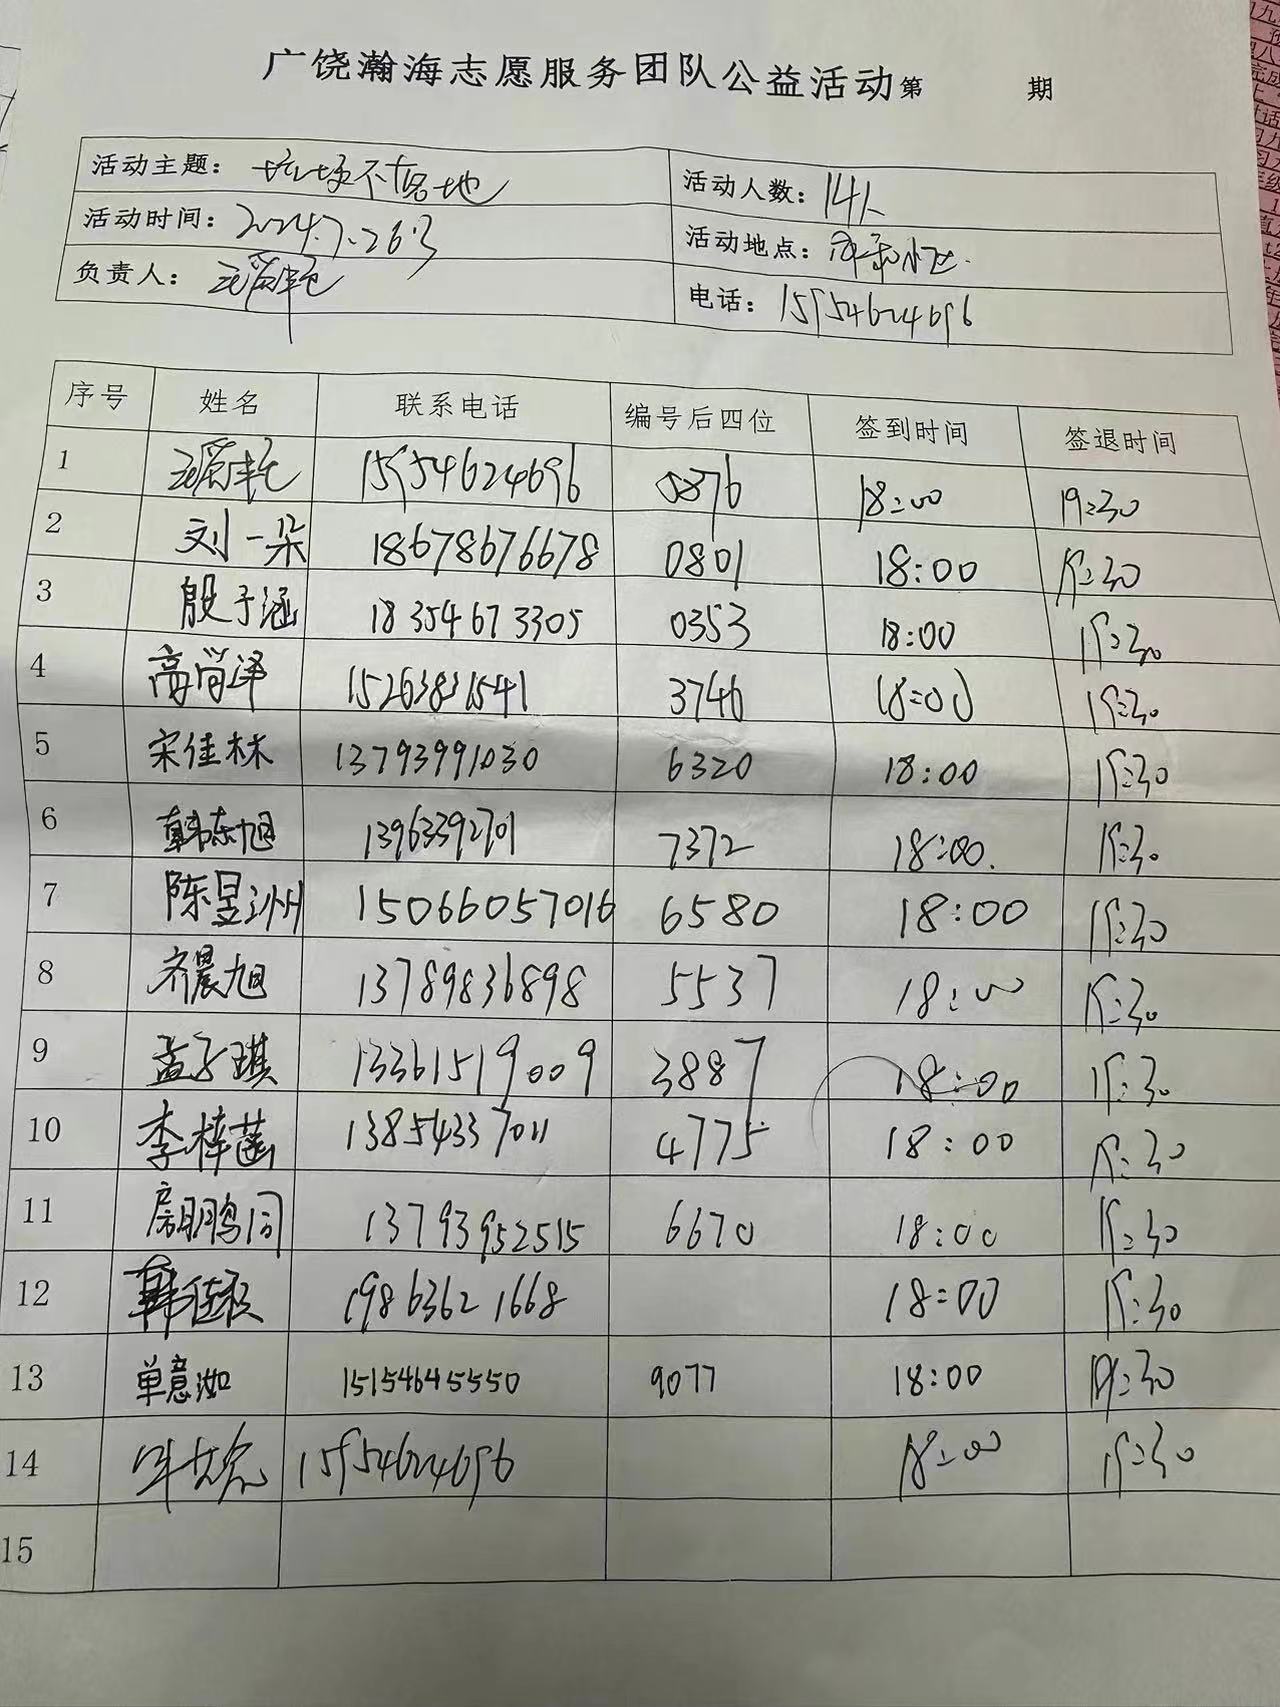 广饶瀚海志愿服务团队公益活动第 期
活动主题：垃圾不落地 活动人数：14人
活动时间：2024.7.26日 活动地点：小区.
负责人： 电话：15954624696
序号 姓名 联系电话 编号后四位 签到时间 签退时间
1 15954624696 0876 18:00 19:30
2 刘一朵 18678676678 0801 18:00 19:30
3 殷子涵 18354673305 0353 18:00 19:30
4 高尚泽 15263831541 3746 18:00 19:30
5 宋佳林 13793991030 6320 18:00 19:30
6 韩东旭 13963392701 7372 18:00. 19:30
7 陈昱洲 15066057016 6580 18:00 19:30
8 齐晨旭 13789836898 5537 18:00 19:30
9 孟子琪 13361519009 3887 18:00 19:30
10 李梓菡 13854337011 4775 18:00 19:30
11 鹏同 13793952515 6670 18:00 19:30
12 韩佳 19863621668 18:00 19:30
13 单意如 15154645550 9077 18:00 19:30
14 15954624696 18:00 19:30
15